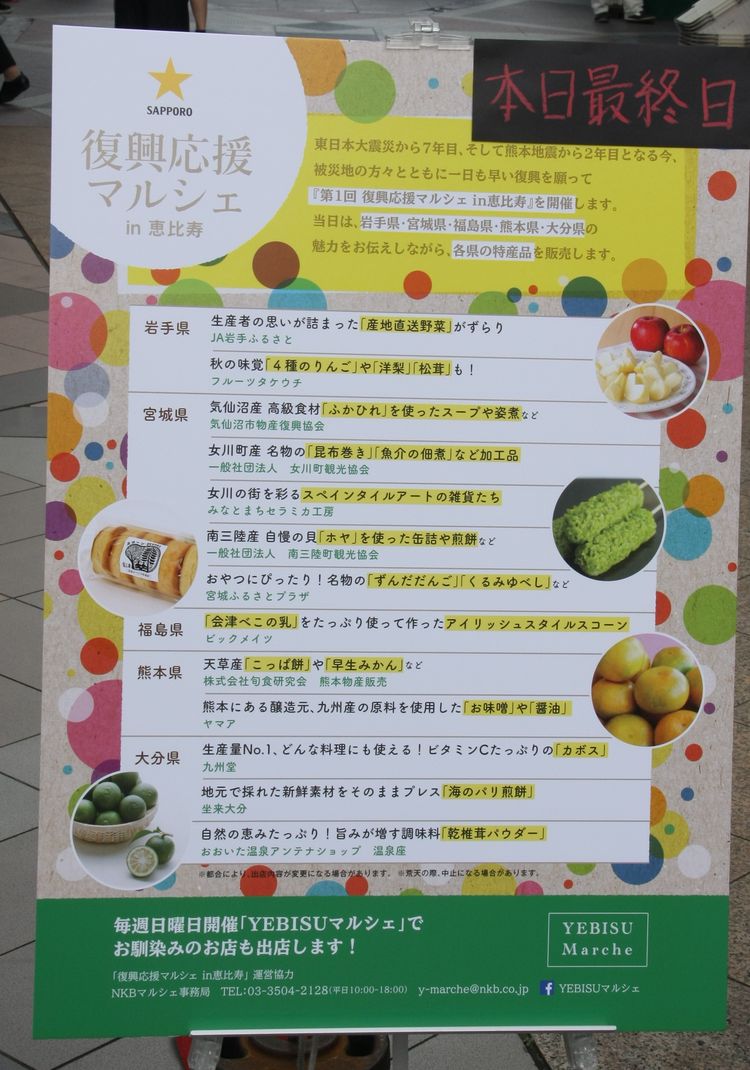 本日最終日
SAPPORO
復興応援
マルシェ
in 恵比寿
東日本大震災から7年目、そして熊本地震から2年目となる今、
被災地の方々とともに一日も早い復興を願って
『第1回 復興応援マルシェ in恵比寿』を開催します。
当日は、岩手県・宮城県・福島県・熊本県・大分県の
魅力をお伝えしながら、各県の特産品を販売します。
岩手県
生産者の思いが詰まった「産地直送野菜」がずらり
JA岩手ふるさと
秋の味覚「4種のりんご」や「洋梨」「松茸」も！
フルーツタケウチ
宮城県
気仙沼産 高級食材「ふかひれ」を使ったスープや姿煮など
気仙沼市物産復興協会
女川町産 名物の「昆布巻き」「魚介の佃煮」など加工品
一般社団法人 女川町観光協会
女川の街を彩るスペインタイルアートの雑貨たち
みなとまちセラミカ工房
南三陸産 自慢の貝「ホヤ」を使った缶詰や煎餅など
一般社団法人 南三陸町観光協会
おやつにぴったり！名物の「ずんだだんご」「くるみゆべし」など
宮城ふるさとプラザ
福島県
「会津べこの乳」をたっぷり使って作ったアイリッシュスタイルスコーン
ビックメイツ
熊本県
天草産「こっぱ餅」や「早生みかん」など
株式会社旬食研究会 熊本物産販売
熊本にある醸造元、九州産の原料を使用した「お味噌」や「醤油」
ヤマア
大分県
生産量No.1、どんな料理にも使える！ビタミンCたっぷりの「カボス」
九州堂
地元で採れた新鮮素材をそのままプレス「海のパリ煎餅」
坐来大分
自然の恵みたっぷり！旨みが増す調味料「乾椎茸パウダー」
おおいた温泉アンテナショップ 温泉座
※都合により、出店内容が変更になる場合があります。 ※荒天の際、中止になる場合があります。
毎週日曜日開催「YEBISUマルシェ」で
お馴染みのお店も出店します！
YEBISU
Marche
「復興応援マルシェ in恵比寿」運営協力
NKBマルシェ事務局 TEL:03-3504-2128(平日10:00-18:00) y-marche@nkb.co.jp YEBISUマルシェ